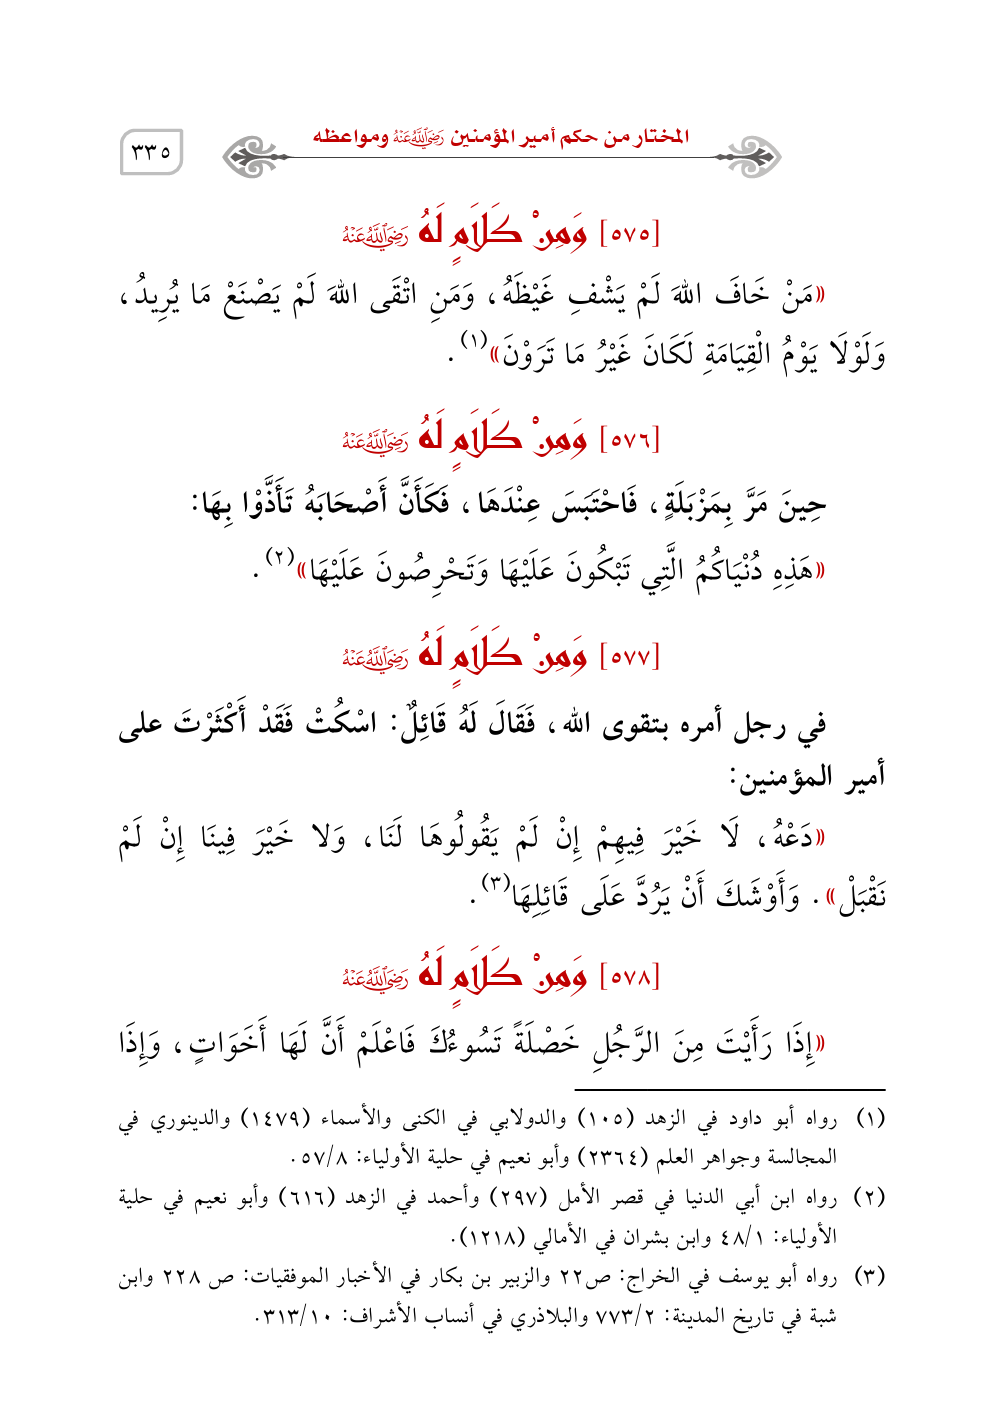 المختار من حكم أمير المؤمنين رَضِيَ اللَّهُ عَنْهُ ومواعظه
٣٣٥
[٥٧٥] وَمِنْ كَلَامٍ لَهُ رَضِيَ اللَّهُ عَنْهُ
«مَنْ خَافَ اللهَ لَمْ يَشْفِ غَيْظَهُ، وَمَنِ اتْقَى اللهَ لَمْ يَصْنَعْ مَا يُرِيدُ،
وَلَوْلَا يَوْمُ الْقِيَامَةِ لَكَانَ غَيْرُ مَا تَرَوْنَ»(١).
[٥٧٦] وَمِنْ كَلَامٍ لَهُ رَضِيَ اللَّهُ عَنْهُ
حِينَ مَرَّ بِمَزْبَلَةٍ، فَاحْتَبَسَ عِنْدَهَا، فَكَأَنَّ أَصْحَابَهُ تَأَذَّوْا بِهَا:
«هَذِهِ دُنْيَاكُمُ الَّتِي تَبْكُونَ عَلَيْهَا وَتَحْرِصُونَ عَلَيْهَا»(٢).
[٥٧٧] وَمِنْ كَلَامٍ لَهُ رَضِيَ اللَّهُ عَنْهُ
في رجل أمره بتقوى الله، فَقَالَ لَهُ قَائِلٌ: اسْكُتْ فَقَدْ أَكْثَرْتَ على
أمير المؤمنين:
«دَعْهُ، لَا خَيْرَ فِيهِمْ إِنْ لَمْ يَقُولُوهَا لَنَا، وَلا خَيْرَ فِينَا إِنْ لَمْ
نَقْبَلْ». وَأَوْشَكَ أَنْ يَرُدَّ عَلَى قَائِلِهَا(٣).
[٥٧٨] وَمِنْ كَلَامٍ لَهُ رَضِيَ اللَّهُ عَنْهُ
«إِذَا رَأَيْتَ مِنَ الرَّجُلِ خَصْلَةً تَسُوءُكَ فَاعْلَمْ أَنَّ لَهَا أَخَوَاتٍ، وَإِذَا
(١) رواه أبو داود في الزهد (١٠٥) والدولابي في الكنى والأسماء (١٤٧٩) والدينوري في
المجالسة وجواهر العلم (٢٣٦٤) وأبو نعيم في حلية الأولياء: ٥٧/٨.
(٢) رواه ابن أبي الدنيا في قصر الأمل (٢٩٧) وأحمد في الزهد (٦١٦) وأبو نعيم في حلية
الأولياء: ٤٨/١ وابن بشران في الأمالي (١٢١٨).
(٣) رواه أبو يوسف في الخراج: ص٢٢ والزبير بن بكار في الأخبار الموفقيات: ص ٢٢٨ وابن
شبة في تاريخ المدينة: ٧٧٣/٢ والبلاذري في أنساب الأشراف: ٣١٣/١٠.